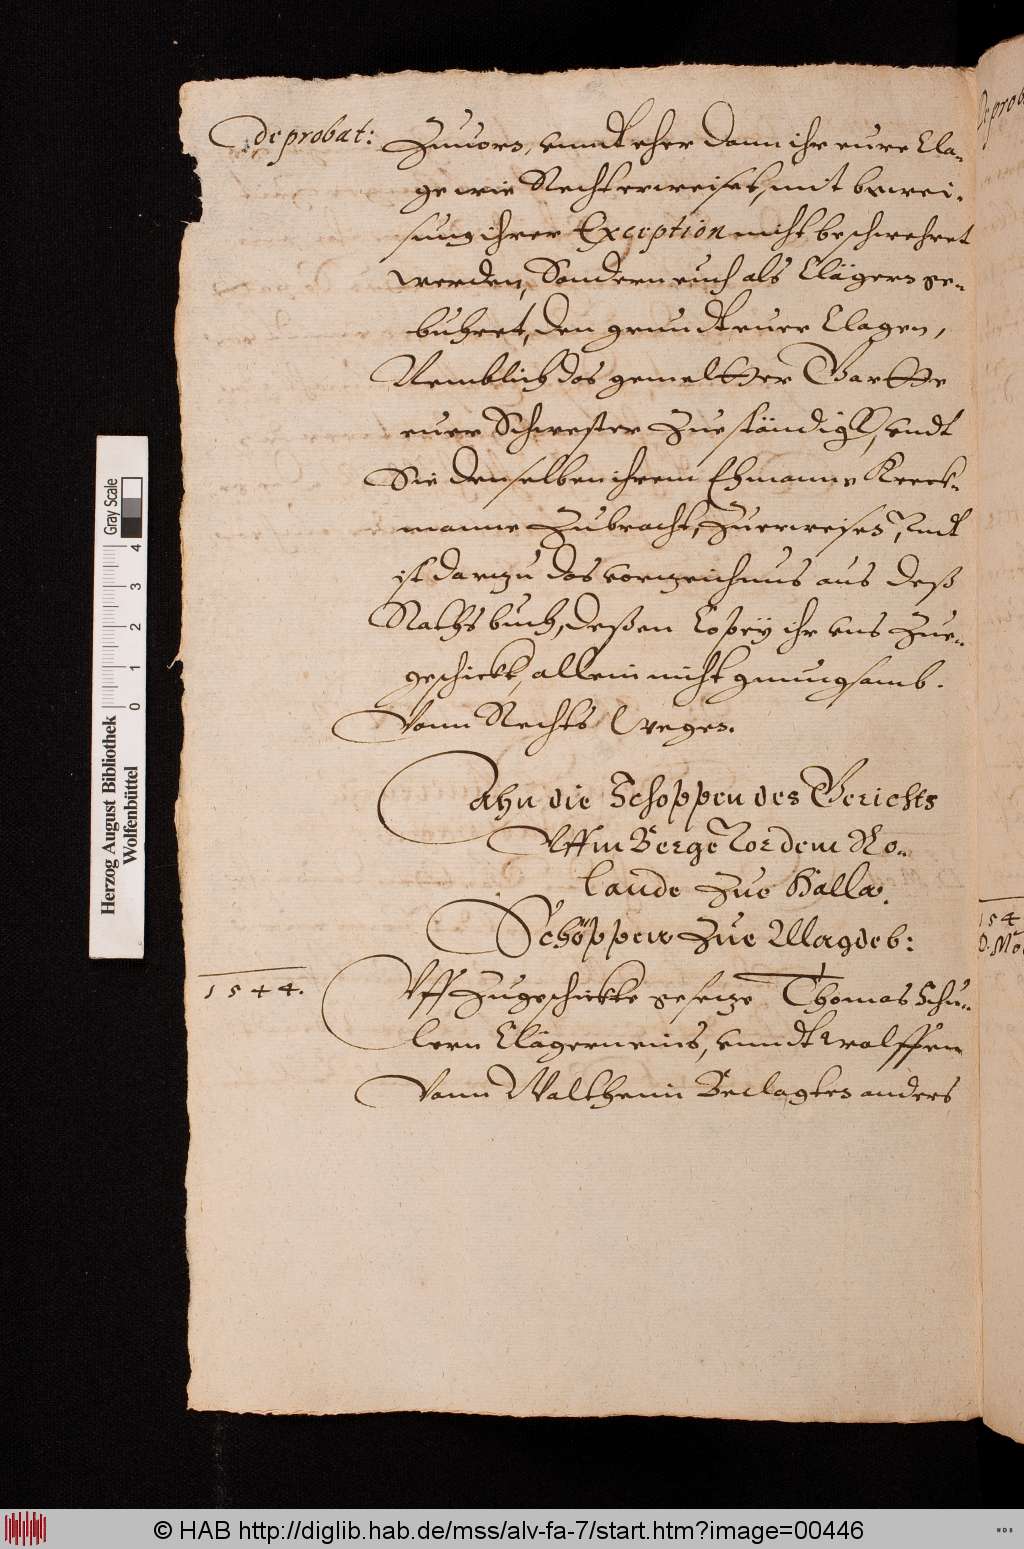 De probat:
Zuuorn, vnndt eher dann ihr eure Cla-
ge wie Recht erweiset, mit bewei-
sung ihrer Exception nicht beschwehret
werden, Sondern euch als Clägern ge-
buhret, den grundt eurer Clagen,
Nemblich das gemeltter Gartte
eurer Schwester Zuständigk, vndt
Sie denselben ihrem Ehmanne Kerck-
manne Zubracht, Zuerweisen, Undt
ist darzu das vorzeichnus aus deß
Raths buch, deßen Copey ihr vns Zue-
geschickt, allein nicht gnungsamb.
Vonn Rechts Weges.
Ahn die Schoppen des Gerichts
Uffm Berge Vor dem Ro-
lande Zue Halla.
Schöppen Zue Magdeb:
1544.
Uff Zugeschickte gesetze Thomas Schu-
lern Clägern eins, vnndt Wolffen
Vonn Walthenn Beclagten anders
De prob
154
D. Mo
Herzog August Bibliothek
Wolfenbüttel
0 1 2 3 4
Gray Scale
© HAB http://diglib.hab.de/mss/alv-fa-7/start.htm?image=00446